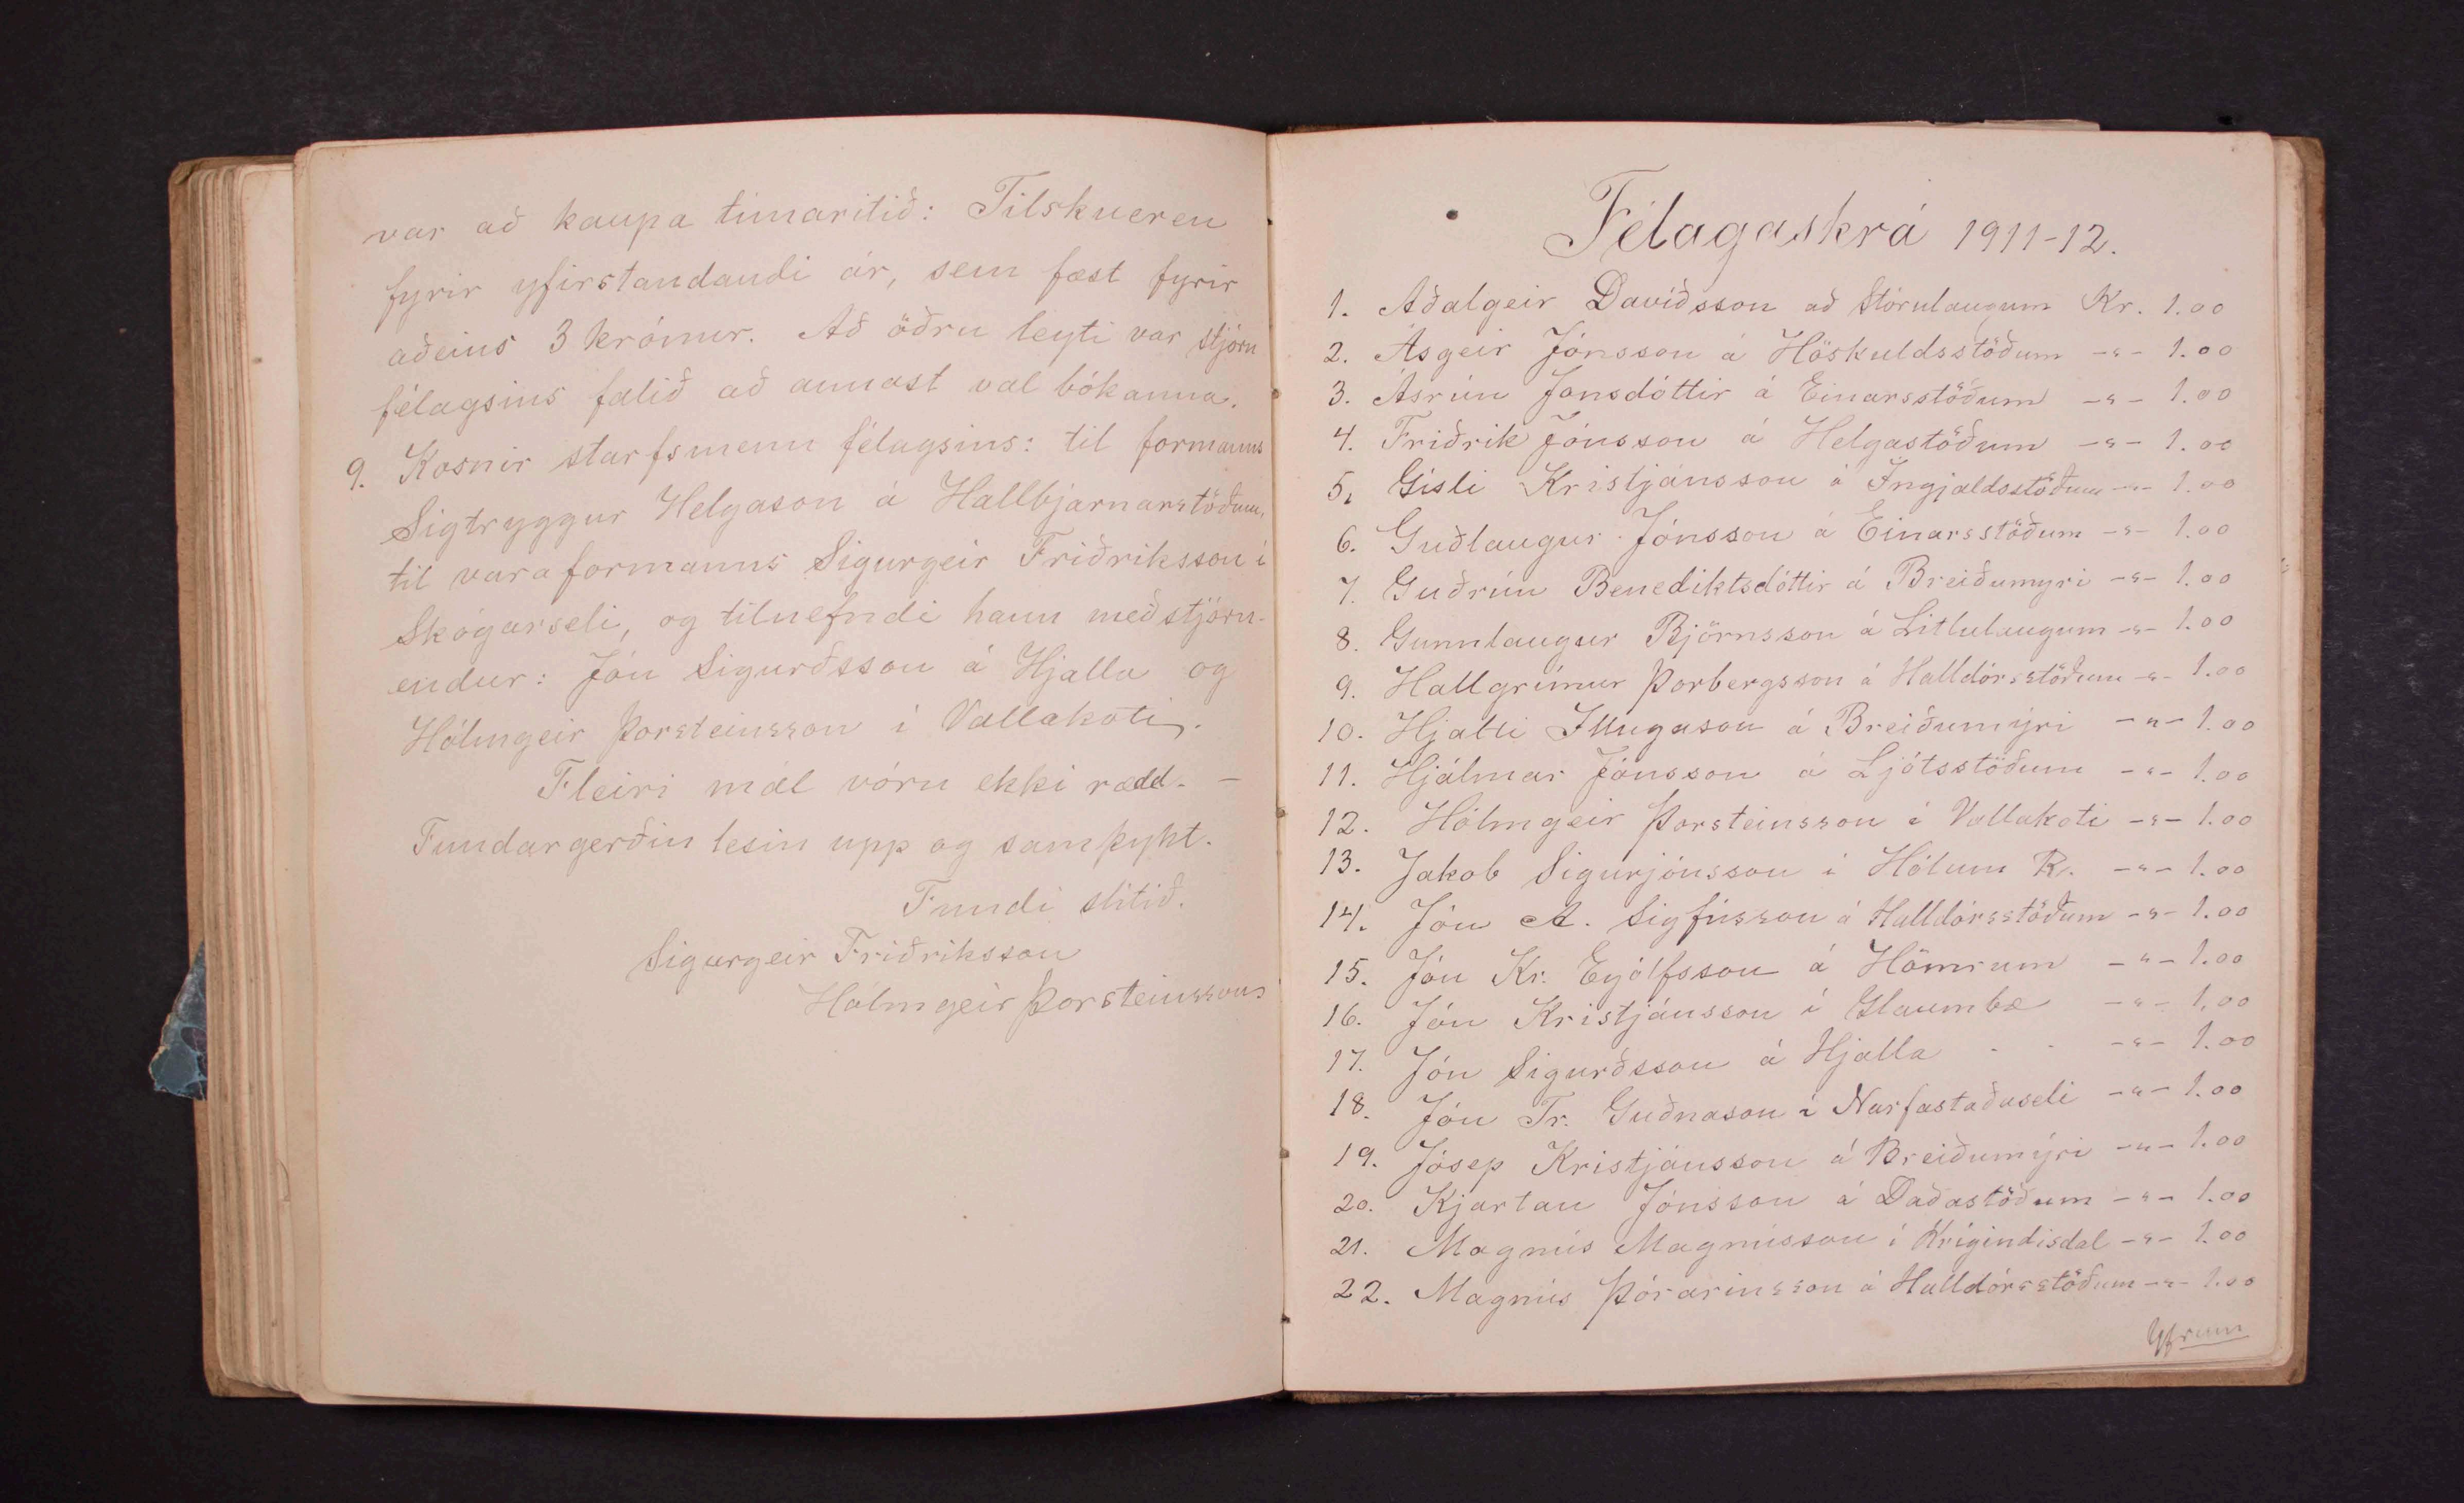 var að kaupa tímaritið: Tilskueren
fyrir yfirstandandi ár, sem fæst fyrir
aðeins 3 krónur. Að öðru leyti var stjórn
félagsins falið að annast val bókanna.
9. Kosnir starfsmenn félagsins: til formanns
Sigtryggur Helgason á Hallbjarnarstöðum,
til varaformanns Sigurgeir Friðriksson í
Skógarseli, og tilnefndi hann meðstjórn-
endur: Jón Sigurðsson á Hjalla og
Hólmgeir Þorsteinsson í Vallakoti.
Fleiri mál vóru ekki rædd. –
Fundargerðin lesin upp og samþykt.
Fundi slitið.
Sigurgeir Friðriksson
Hólmgeir Þorsteinsson
Félagaskrá 1911-12.
1. Aðalgeir Davíðsson að Stórulaugum Kr. 1.00
2. Ásgeir Jónsson á Höskuldsstöðum -"- 1.00
3. Ásrún Jónsdóttir á Einarsstöðum -"- 1.00
4. Friðrik Jónsson á Helgastöðum -"- 1.00
5. Gísli Kristjánsson á Ingjaldsstöðum -"- 1.00
6. Guðlaugur Jónsson á Einarsstöðum -"- 1.00
7. Guðrún Benediktsdóttir á Breiðumýri -"- 1.00
8. Gunnlaugur Björnsson á Litlulaugum -"- 1.00
9. Hallgrímur Þorbergsson á Halldórsstöðum -"- 1.00
10. Hjalti Illugason á Breiðumýri -"- 1.00
11. Hjálmar Jónsson á Ljótsstöðum -"- 1.00
12. Hólmgeir Þorsteinsson í Vallakoti -"- 1.00
13. Jakob Sigurjónsson í Hólum R. -"- 1.00
14. Jón A. Sigfússon á Halldórsstöðum -"- 1.00
15. Jón Kr. Eyjólfsson á Hömrum -"- 1.00
16. Jón Kristjánsson í Glaumbæ -"- 1.00
17. Jón Sigurðsson á Hjalla . . -"- 1.00
18. Jón Tr. Guðnason í Narfastaðaseli -"- 1.00
19. Jósep Kristjánsson á Breiðumýri -"- 1.00
20. Kjartan Jónsson á Daðastöðum -"- 1.00
21. Magnús Magnússon í Hrígindisdal -"- 1.00
22. Magnús Þórarinsson á Halldórsstöðum -"- 1.00